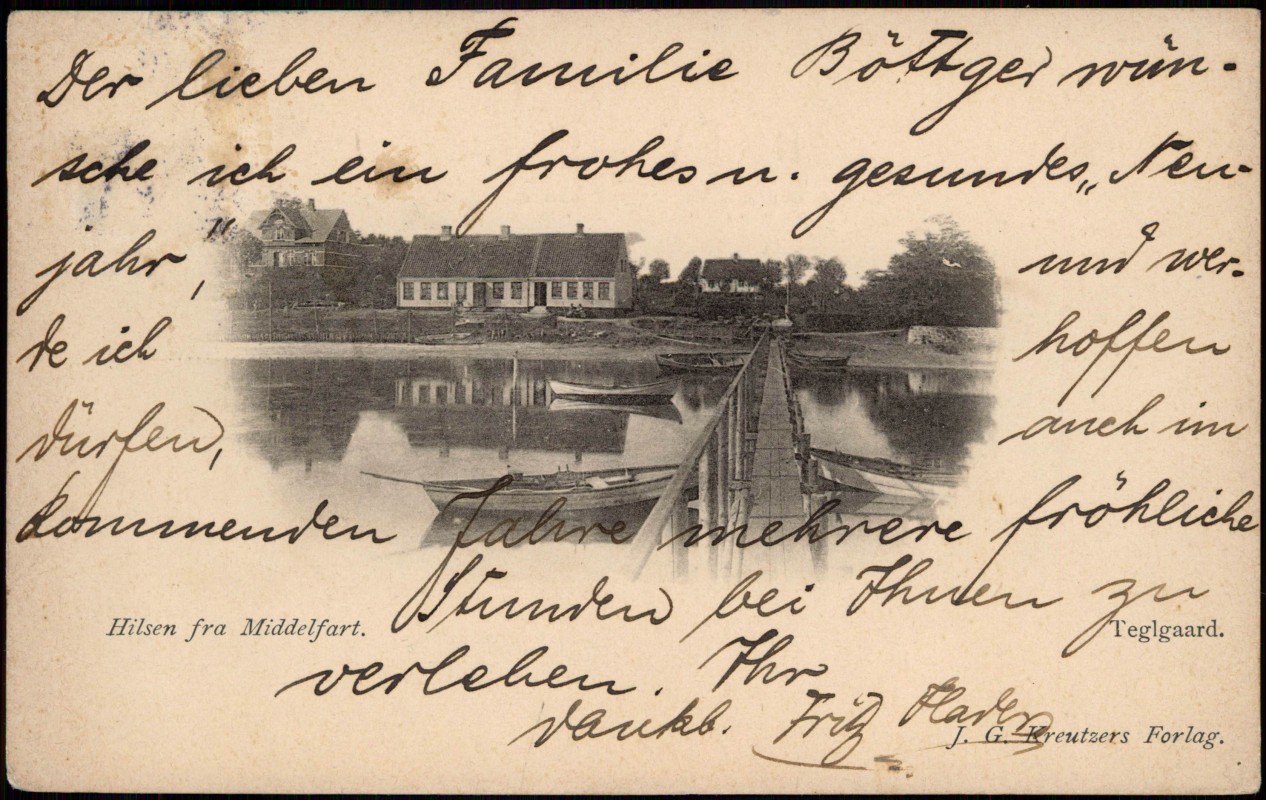 Der lieben Familie Böttger wün-
sche ich ein frohes u. gesundes „Neu-
jahr,“ und wer-
de ich hoffen
dürfen, auch im
kommenden Jahre mehrere fröhliche
Stunden bei Ihnen zu
Hilsen fra Middelfart. Teglgaard.
verleben. Ihr
dankb. Fritz
J. G. Kreutzers Forlag.